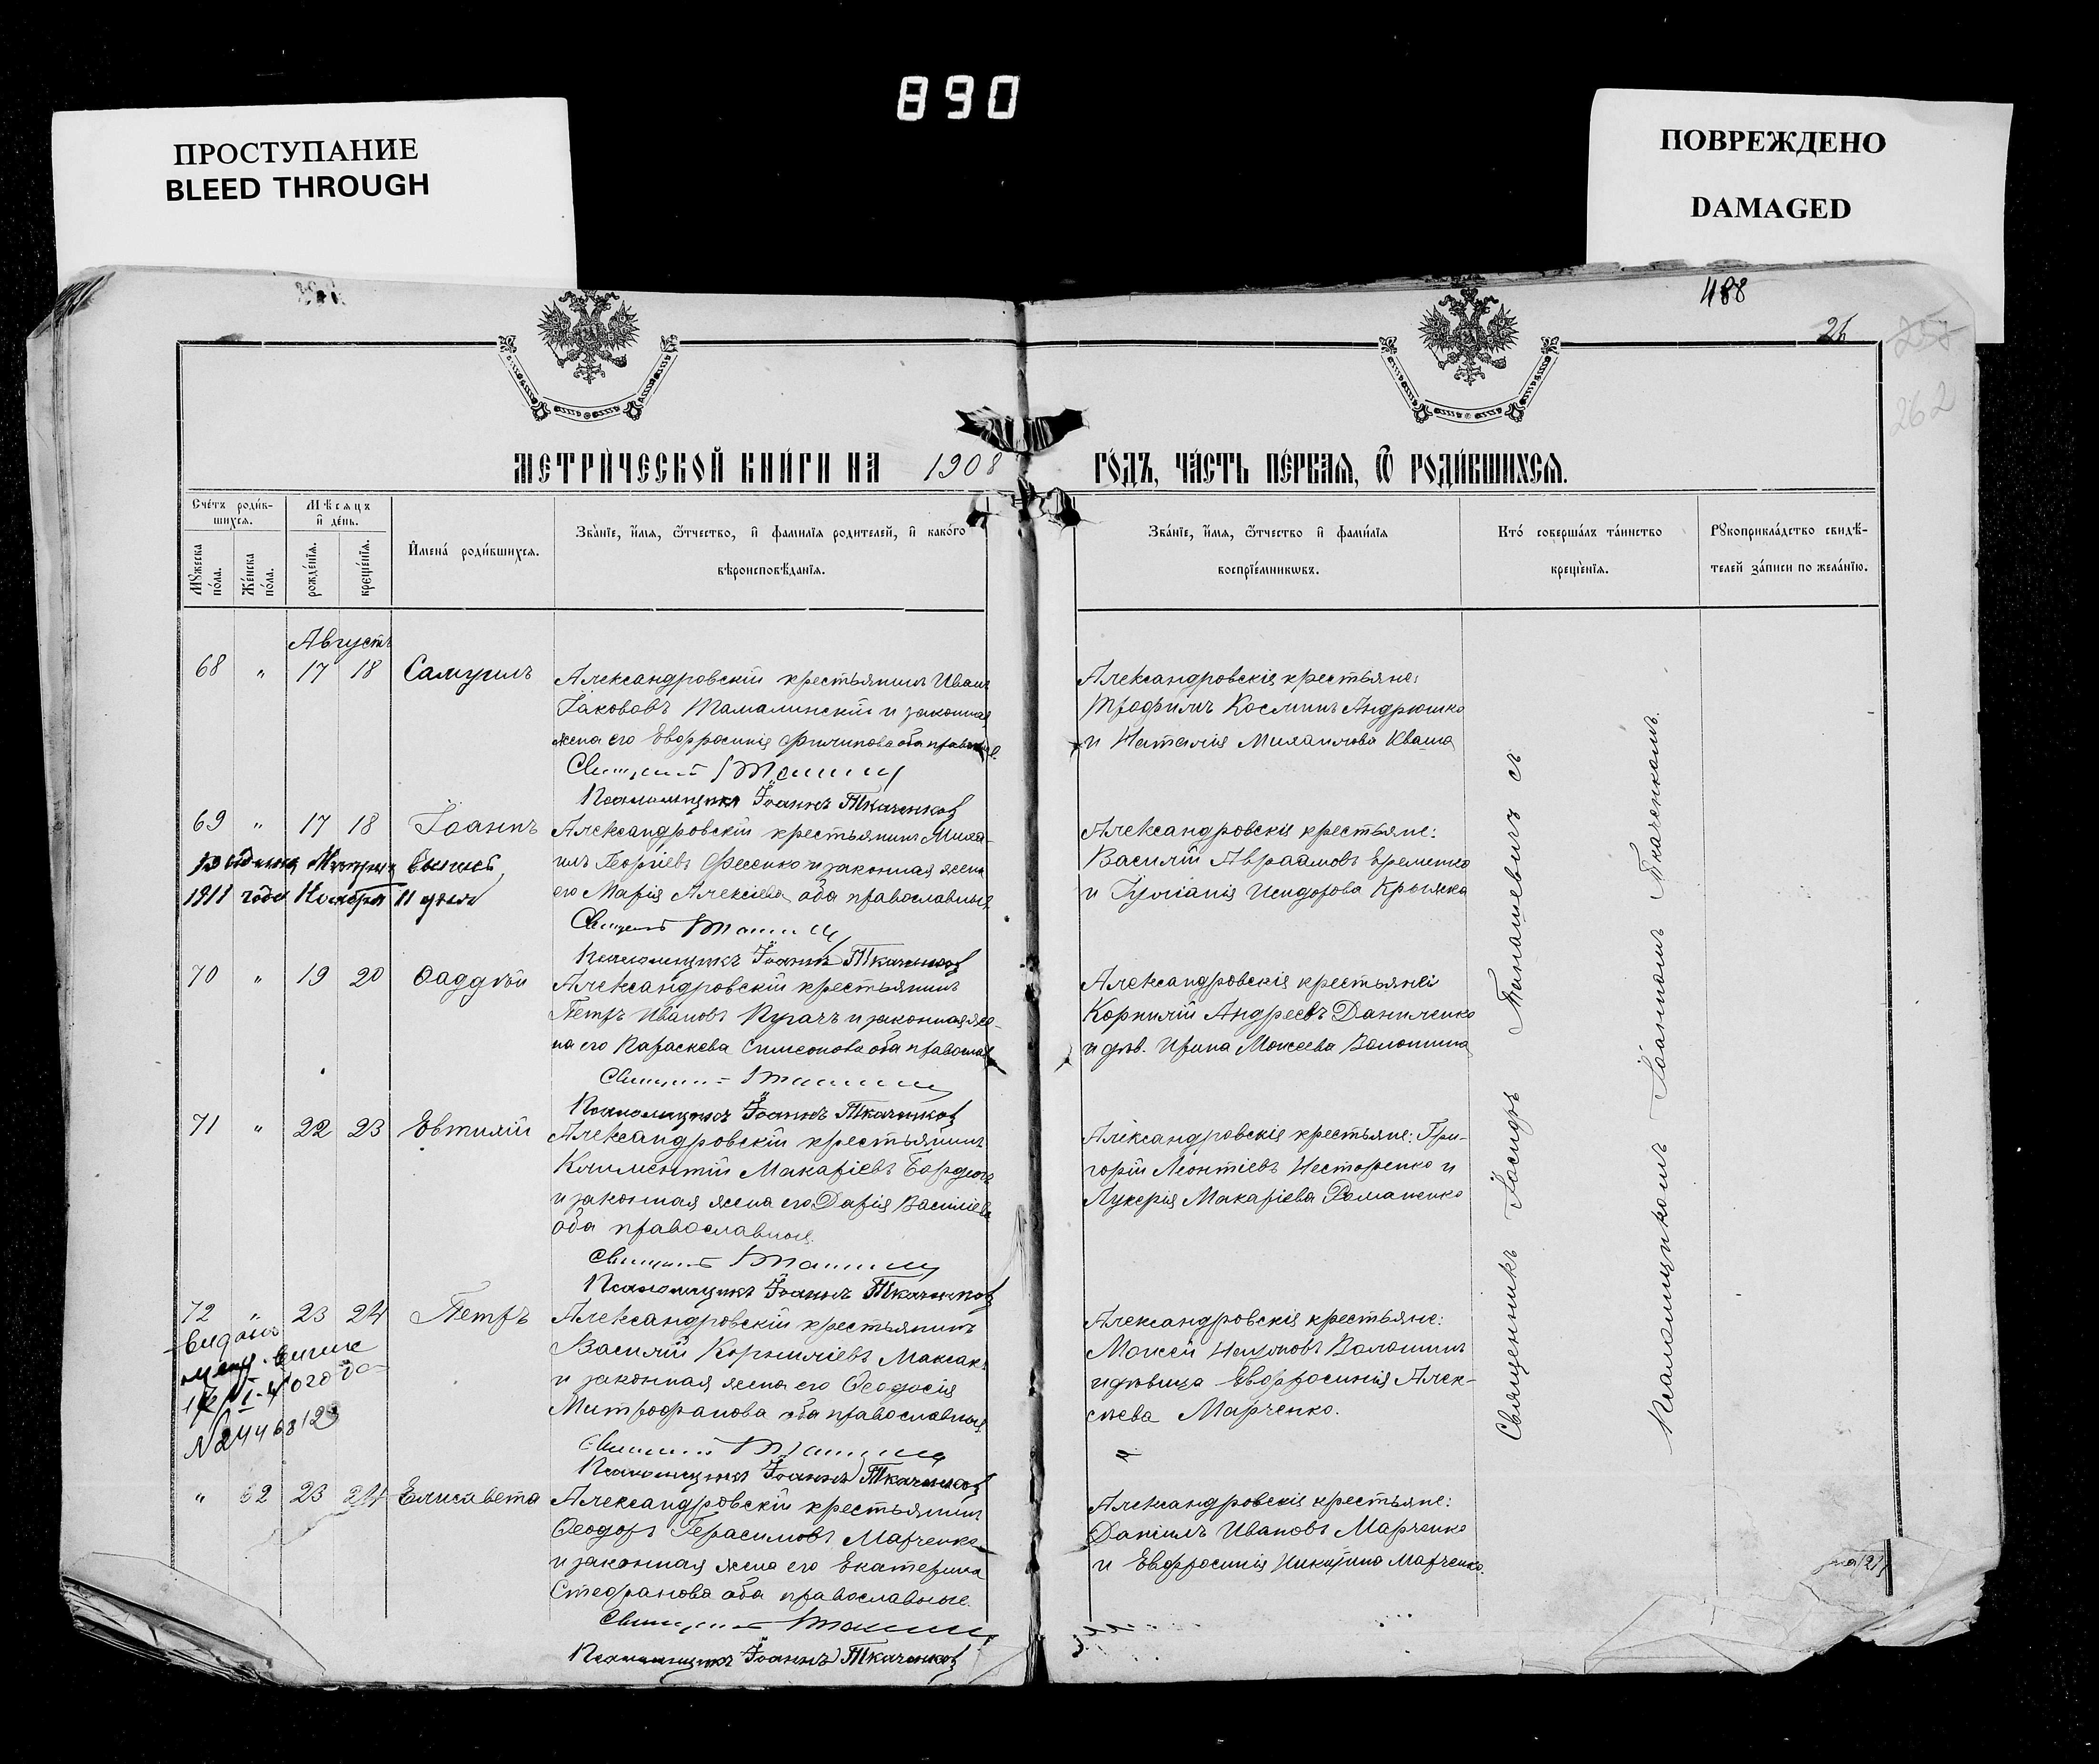 890
ПРОСТУПАНИЕ
BLEED THROUGH
ПОВРЕЖДЕНО
DAMAGED
488
262
МЕТРИ́ЧЕСКОЙ КНИ́ГИ НА 1908 ГО́ДЪ, ЧА́СТЬ ПЕ́РВАЯ, Ѿ РОДИ́ВШИХСЯ.
Сче́тъ роди́в-
шихся.
Мꙋжеска по́ла.
Же́нска по́ла.
Мѣ́сяцъ
и҆ де́нь.
рожде́нїя.
креще́нїя.
И҆мена̀ роди́вшихся.
Зва́нїе, и҆́мя, ѻ҆́тчество, и҆ фами́лїя роди́телей, и҆ како́го
вѣроисповѣ́данїя.
Зва́нїе, и҆́мя, ѻ҆́тчество и҆ фами́лїя
воспрїе́мникѡвъ.
Кто́ соверша́лъ та́инство
креще́нїя.
Рꙋкоприкла́дство свидѣ́-
телей за́писи по жела́нїю.
Августъ
68 " 17 18 Самуилъ
Александровскій крестьянинъ Иванъ
Іакововъ Тамалинскій и законная
жена его Евфросинія Филипова оба православные.
Псаломщикъ Іоаннъ Ткаченковъ
Александровскія крестьяне:
Трофимъ Косминъ Андрюшко
и Наталія Михаилова Кваша
69 " 17 18 Іоаннъ
1911 года Ноября 11 дня
Александровскій крестьянинъ Миха-
илъ Георгіевъ Фесенко и законная жена
его Марія Алексіева оба православные
Псаломщикъ Іоаннъ Ткаченковъ
Александровскія крестьяне:
Василій Авраамовъ Еременко
и Іуліанія Исидорова Крыжка
70 " 19 20 Ѳаддѣй
Александровскій крестьянинъ
Петръ Ивановъ Пугачъ и законная же-
на его Параскева Симеонова оба православные
Псаломщикъ Іоаннъ Ткаченковъ
Александровскія крестьяне:
Корнилій Андреевъ Даниленко
и дѣв. Ирина Моисеева Волошина
71 " 22 23 Евтихій
Александровскій крестьянинъ
Климентій Макаріевъ Бардюгъ
и законная жена его Дарія Василіева
оба православные.
Псаломщикъ Іоаннъ Ткаченковъ
Александровскія крестьяне: Гри-
горій Леонтіевъ Нестеренко и
Лукерія Макаріева Романенко
72 " 23 24 Петръ
Александровскій крестьянинъ
Василій Корниліевъ Максакъ
и законная жена его Ѳеодосія
Митрофанова оба православные.
Псаломщикъ Іоаннъ Ткаченковъ
Александровскія крестьяне:
Моисей Наумовъ Волошинъ
и дѣвица Евфросинія Алек-
сѣева Марченко.
" 62 23 24 Елисавета
Александровскій крестьянинъ
Ѳеодоръ Герасимовъ Марченко
и законная жена его Екатерина
Стефанова оба православные.
Псаломщикъ Іоаннъ Ткаченковъ
Александровскія крестьяне:
Даніилъ Ивановъ Марченко
и Евфросинія Никитина Марченко.
Священникъ Іасидръ Танашевичъ съ
Псаломщикомъ Іоанномъ Ткаченкомъ.